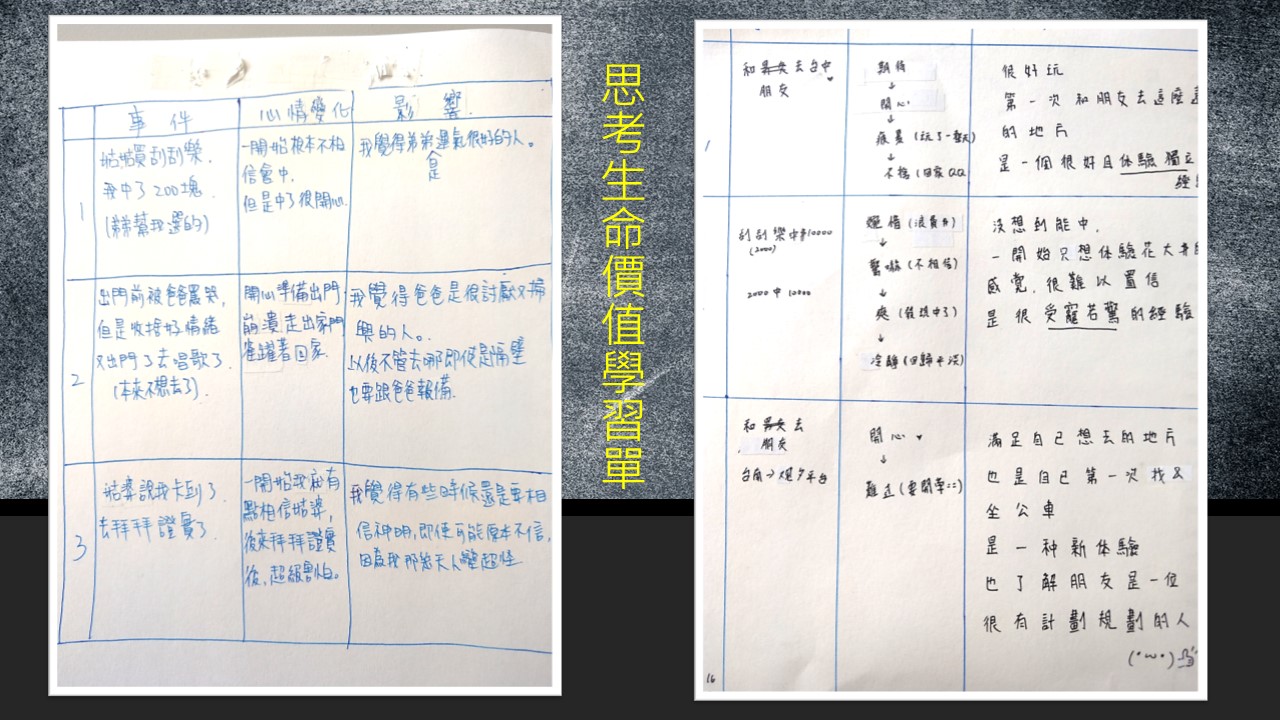 事件
心情變化
影響
1
姑姑買刮刮樂,
我中了200塊
(弟弟幫我選的)
一開始根本不相
信會中.
但是中了很開心.
我覺得弟弟是會運氣很好的人。
2
出門前被爸爸罵哭,
但是收拾好情緒
又出門了去唱歌了.
(本來不想去了).
開心準備出門
崩潰走出家門
雀躍著回家.
我覺得爸爸是很討厭又掃
興的人。.
以後不管去哪即使是隔壁
也要跟爸爸報備.
3
姑婆說我卡到了.
去拜拜證實了.
一開始我沒有
點相信姑婆,
後來拜拜證實
後,超級害怕。
我覺得有些時候還是要相
信神明,即使可能原本不信,
因為我那幾天人蠻超怪
思考生命價值學習單
和 去台中
朋友
期待
↓
開心
↓
疲憊(玩了一整天)
↓
不捨(回家QQ)
很好玩
第一次和朋友去這麼遠
的地方
是一個很好且体驗獨立
刮刮樂中#10000
(2000)
2000中10000
↓
驚嚇(不相信)
↓
爽(發現中了)
↓
冷靜(回歸平淡)
沒想到能中,
一開始只想体驗花大#的
感覚,很難以置信
是很受寵若驚的經驗
和 去
朋友
台南→ 夕平台
開心♥
↓
難过(要開學::)
滿足自己想去的地方
也是自己第一次找&
坐公車
是一种新体驗
也了解朋友是一位
很有計劃規劃的人
(·ω·)
16